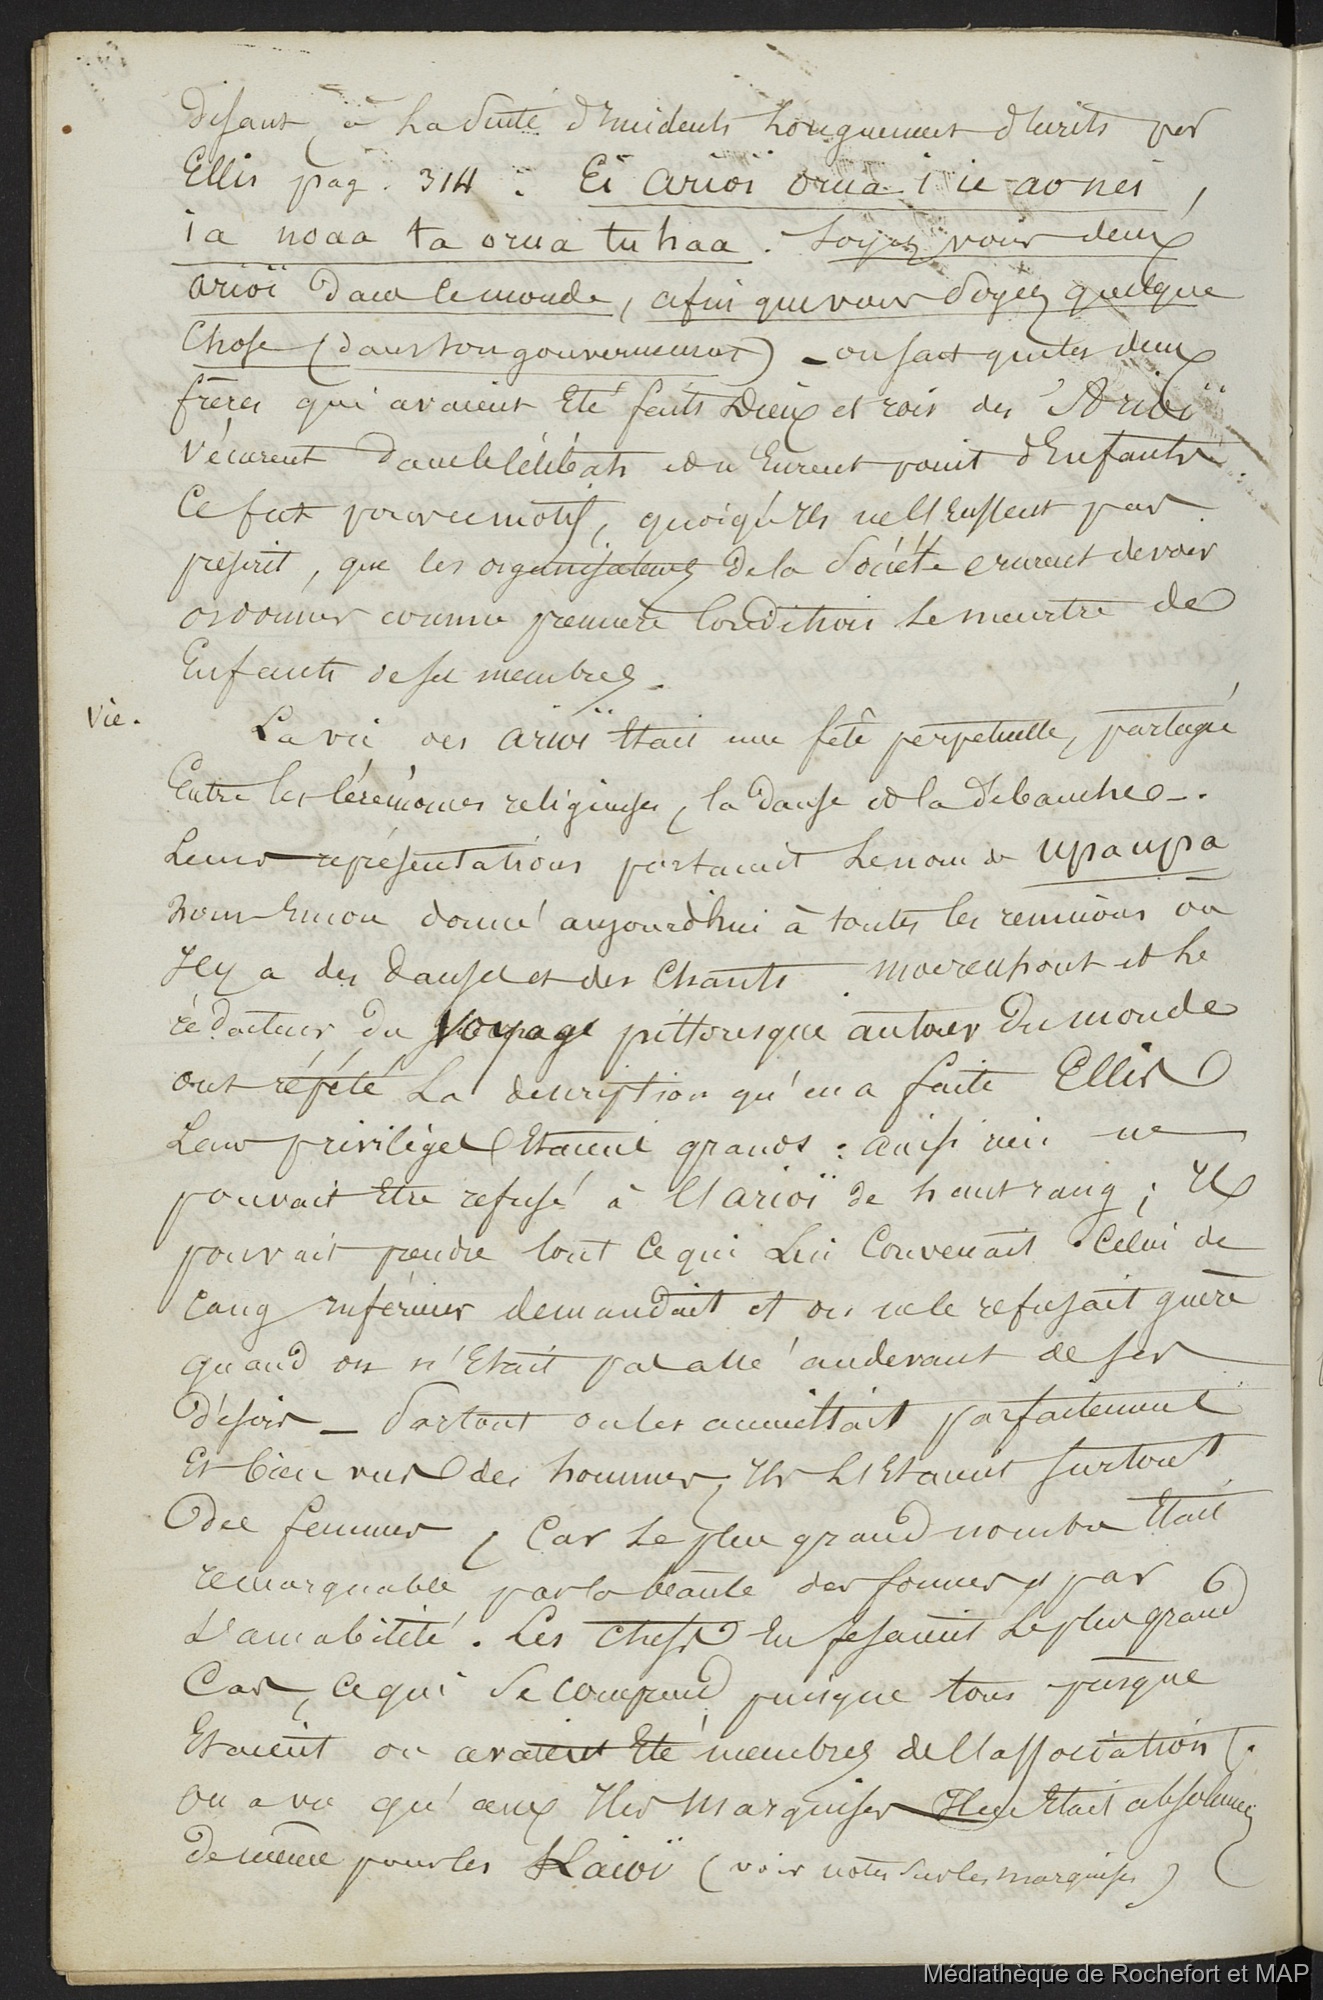 disant, à la suite d'incidents longuement décrits par
Ellis pag. 314 : Ei arioi orua i ie ao nei,
ia noaa ta orua tuhaa. Soyez vous deux
arioï dans le monde, afin que vous soyez quelque
chose (dans son gouvernement) – on sait que les deux
frères qui avaient été faits Dieux et rois des Arioï
vécurent dans le célibat et n'eurent point d'Enfants.
Ce fut pour ce motif, quoiqu'ils ne l'Eussent pas
prescrit, que les organisateurs de la Société crurent devoir
ordonner comme première Condition le meurtre des
Enfants de ses membres.
Vie.
La vie des arioï Etait une fête perpetuelle, partagée
Entre les Cérémonies religieuses, la danse et la débauche –.
Leurs représentations portaient le nom de upaupa
nom Encore donné aujourd'hui à toutes les reunions où
Il y a des danses et des Chants. Moerenhout et le
rédacteur du Voyage pittoresque autour du monde
ont répété la description qu'en a faite Ellis
Leurs privilèges Etaient grands : ainsi rien ne
pouvait Etre refusé à l'arioï de haut rang ; Il
pouvait prendre tout ce qui Lui Convenait. Celui de
rang inférieur demandait et on ne le refusait guère
quand on n'Etait pas allé audevant de ses
désirs – Partout on les accueillait parfaitement
Et bien vus des hommes, Ils l'Etaient surtout
des femmes, Car le plus grand nombre Etait
remarquable par la beauté des formes et par
L'amabilité. Les Chefs En fesaient le plus grand
Cas, ce qui se comprend puisque tous presque
Etaient ou avaient Eté membres de l'association.
On a vu qu'aux Iles Marquises Il en Etait absolument
de même pour les Kaioï (voir notes sur les marquises)
Médiathèque de Rochefort et MAP